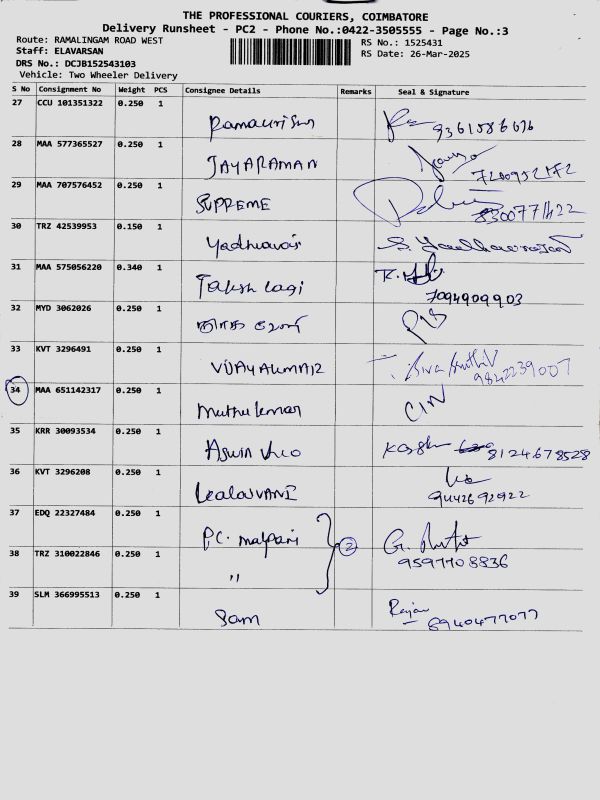 THE PROFESSIONAL COURIERS, COIMBATORE
Delivery Runsheet - PC2 - Phone No.:0422-3505555 - Page No.:3
Route: RAMALINGAM ROAD WEST
RS No.: 1525431
Staff: ELAVARSAN
RS Date: 26-Mar-2025
DRS No.: DCJB152543103
Vehicle: Two Wheeler Delivery
S No Consignment No Weight PCS Consignee Details Remarks Seal & Signature
27 CCU 101351322 0.250 1
28 MAA 577365527 0.250 1 JAYARAMAN
29 MAA 707576452 0.250 1 SUPREME
30 TRZ 42539953 0.150 1
31 MAA 575056220 0.340 1
7094909903
32 MYD 3062026 0.250 1
33 KVT 3296491 0.250 1 VIJAYAKUMAR
9842239007
34 MAA 651142317 0.250 1 muthu kumar
35 KRR 30093534 0.250 1 8124678528
36 KVT 3296208 0.250 1
9442692922
37 EDQ 22327484 0.250 1 P.C. malpani 2
38 TRZ 310022846 0.250 1 " 9597708836
39 SLM 366995513 0.250 1 Sam Rajan
8940477077